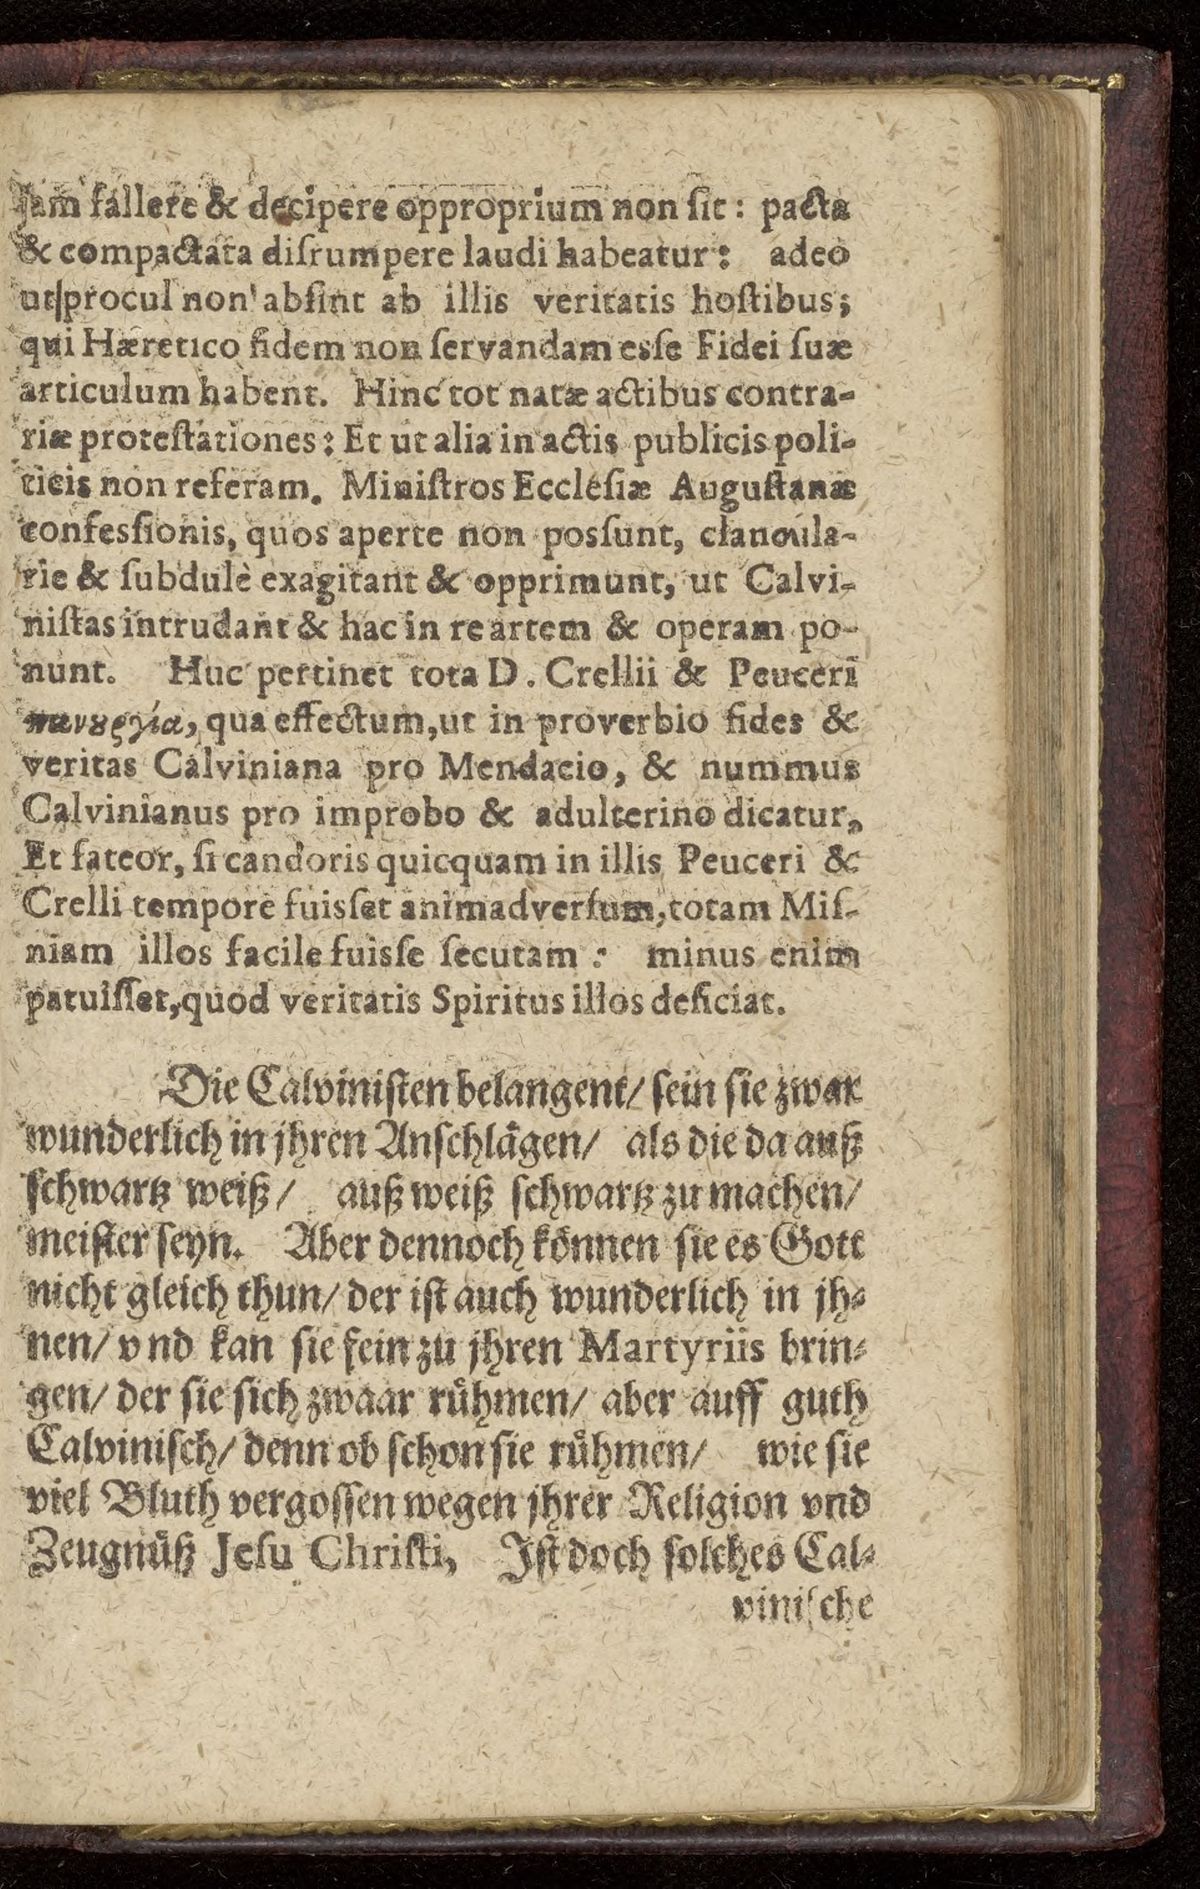 jam fallere & decipere opproprium non ſit: pacta
& compactata diſrumpere laudi habeatur: adeo
ut procul non abſint ab illis veritatis hoſtibus;
qui Hæretico fidem non ſervandam esſe Fidei ſuæ
articulum habent. Hinc tot natæ actibus contra-
riæ proteſtationes: Et ut alia in actis publicis poli-
ticis non referam. Miniſtros Eccleſiæ Auguſtanæ
confesſionis, quos aperte non posſunt, clancula-
rie & ſubdulè exagitant & opprimunt, ut Calvi-
niſtas intrudant & hac in re artem & operam po-
nunt. Huc pertinet tota D. Crellii & Peuceri
πανȣργία, qua effectum, ut in proverbio fides &
veritas Calviniana pro Mendacio, & nummus
Calvinianus pro improbo & adulterino dicatur,
Et fateor, ſi candoris quicquam in illis Peuceri &
Crelli tempore fuisſet animadverſum, totam Miſ-
niam illos facile fuisſe ſecutam: minus enim
patuiſſet, quod veritatis Spiritus illos deficiat.
Die Calviniſten belangent/ ſein ſie zwar
wunderlich in jhren Anſchlägen/ als die da auß
ſchwartz weiß/ auß weiß ſchwartz zu machen/
meiſter ſeyn. Aber dennoch können ſie es Gott
nicht gleich thun/ der iſt auch wunderlich in jh-
nen/ vnd kan ſie fein zu jhren Martyriis brin-
gen/ der ſie ſich zwaar rühmen/ aber auff guth
Calviniſch/ denn ob ſchon ſie rühmen/ wie ſie
viel Bluth vergoſſen wegen jhrer Religion vnd
Zeugnüß Jeſu Chriſti, Iſt doch ſolches Cal-
viniſche